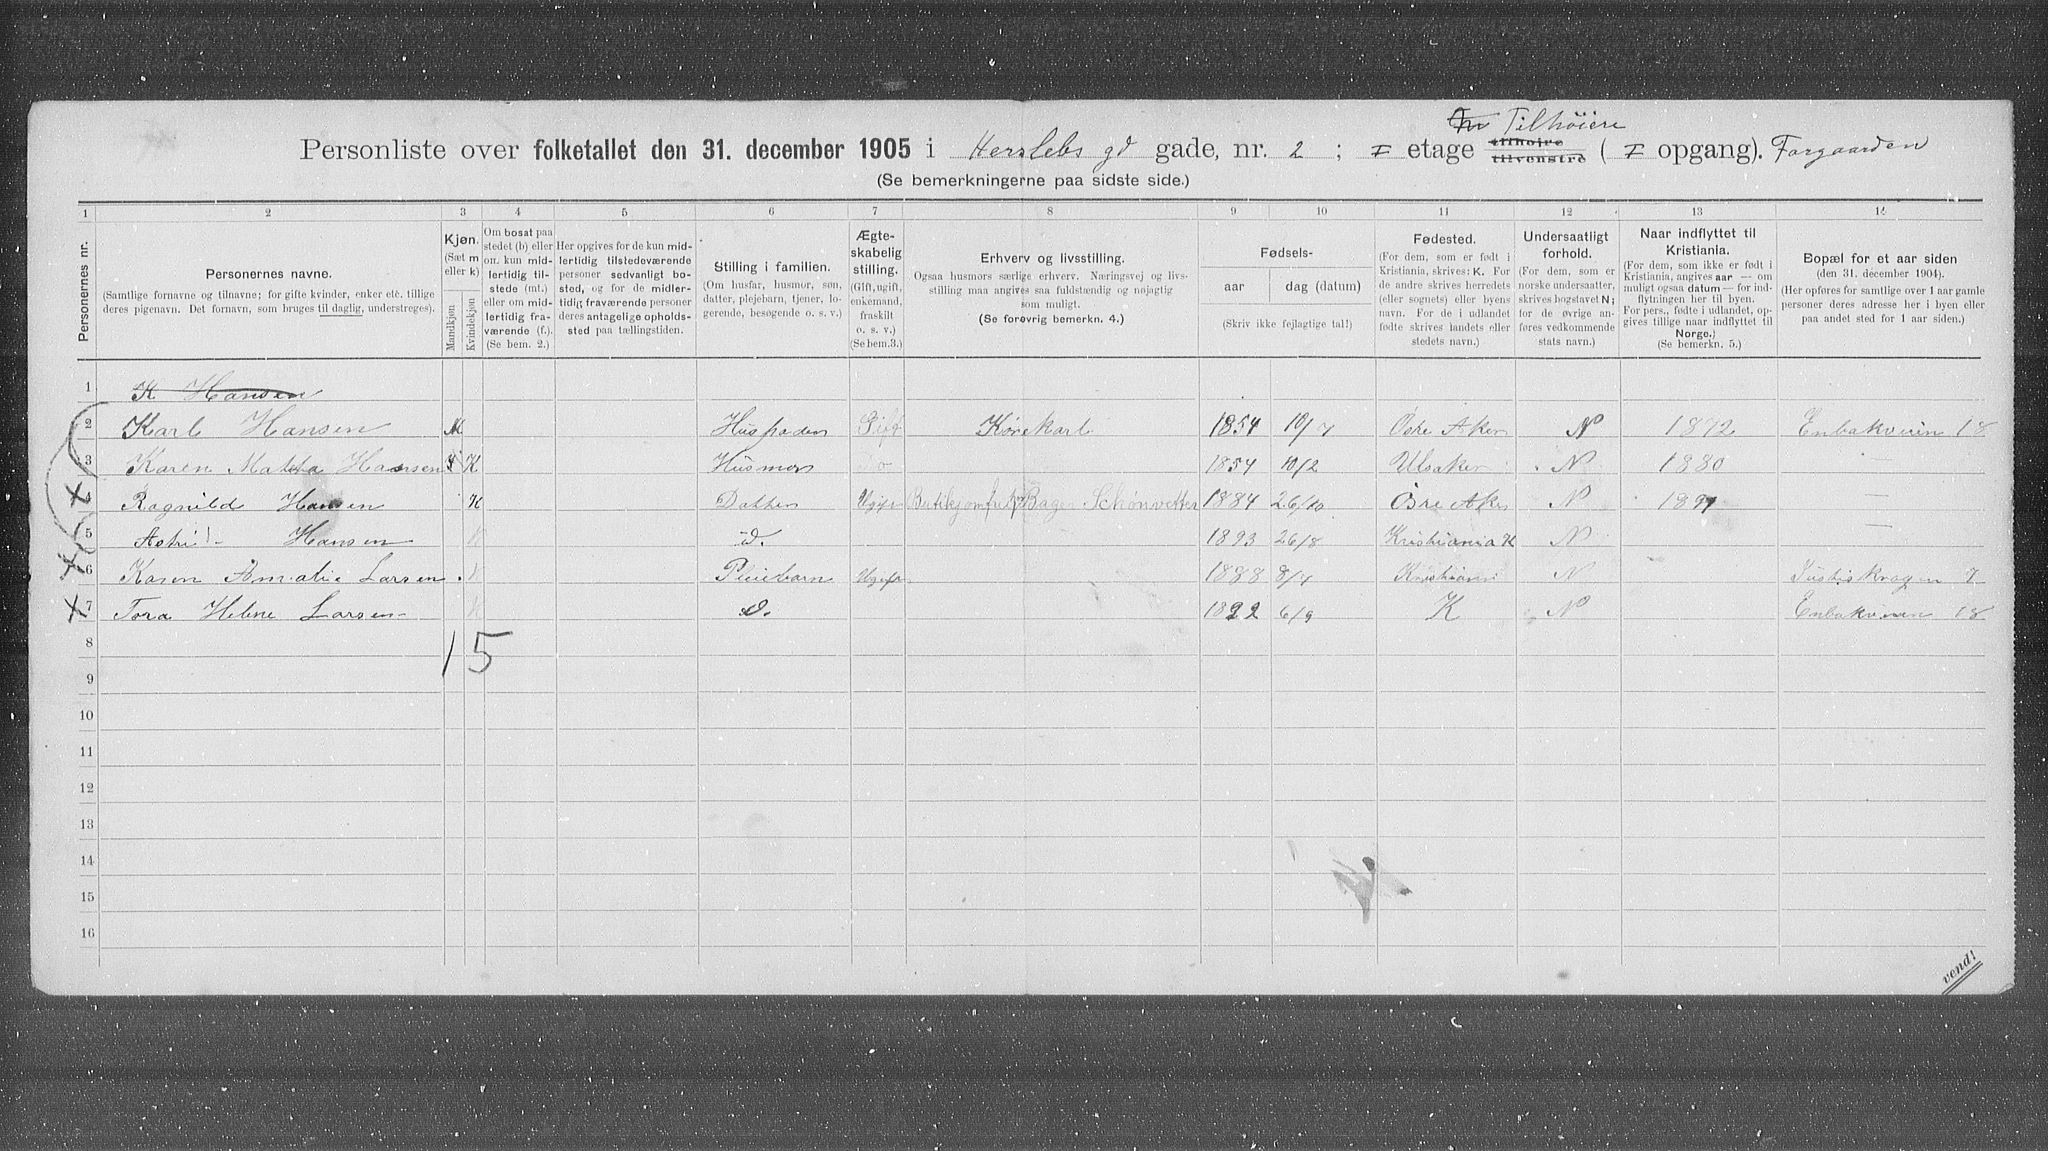 Tilhöire
Personliste over folketallet den 31. december 1905 i Herslebs gd gade, nr. 2 ; I etage tilhøire tilvenstre ( I opgang). Forgaarden
(Se bemerkningerne paa sidste side.)
1 2 3 4 5 6 7 8 9 10 11 12 13 14
Personernes nr.
Personernes navne.
(Samtlige fornavne og tilnavne; for gifte kvinder, enker etc. tillige deres pigenavn. Det fornavn, som bruges til daglig, understreges).
Kjøn.
(Sæt m eller k)
Mandkjøn
Kvindekjøn
Om bosat paa stedet (b) eller om kun midlertidig tilstede (mt.) eller om midlertidig fraværende (f.). (Se bem. 2.)
Her opgives for de kun midlertidig tilstedeværende personer sedvanligt bosted, og for de midlertidig fraværende personer deres antagelige opholdssted paa tællingstiden.
Stilling i familien.
(Om husfar, husmor, søn, datter, plejebarn, tjener, logerende, besøgende o. s. v.)
Ægteskabelig stilling.
(Gift, ugift, enkemand, fraskilt o. s. v.)
(Se bem. 3.)
Erhverv og livsstilling.
Ogsaa husmors særlige erhverv. Næringsvej og livsstilling maa angives saa fuldstændig og nøjagtig som muligt.
(Se forøvrig bemerkn. 4.)
Fødsels-
aar dag (datum)
(Skriv ikke fejlagtige tal!)
Fødested.
(For dem, som er født i Kristiania, skrives: K. For de andre skrives herredets (eller sognets) eller byens navn. For de i udlandet fødte skrives landets eller stedets navn.)
Undersaatligt forhold.
(For dem, som er norske undersaatter, skrives bogstavet N; for de øvrige anføres vedkommende stats navn.)
Naar indflyttet til Kristiania.
(For dem, som ikke er født i Kristiania, angives aar — om muligt ogsaa datum — for indflytningen her til byen. For pers., fødte i udlandet, opgives tillige naar indflyttet til Norge.)
(Se bemerkn. 5.)
Bopæl for et aar siden
(den 31. december 1904).
(Her opføres for samtlige over 1 aar gamle personer deres adresse her i byen eller paa andet sted for 1 aar siden.)
1 K Hansen
2 Karl Hansen M Husfaden Gift Kørekarl 1854 10/7 Ostre Aker N 1872 Enbakveien 18
3 Karen Hansen K Husmor Do 1854 10/2 Ulsaker N 1880 —
4 Ragnild Hansen K Datter Ugift Bager Schönvetter 1884 26/10 Østre Aker N —
5 Astrid Hansen K d. 1893 26/8 Kristiania K N —
6 Karen Amalie Larsen K Pleiebarn Ugift 1888 8/7 Kristiania N 7
7 Tora Helene Larsen K d. 6/9 K N Enbakveien 18
8
15
9
10
11
12
13
14
15
16
vend!